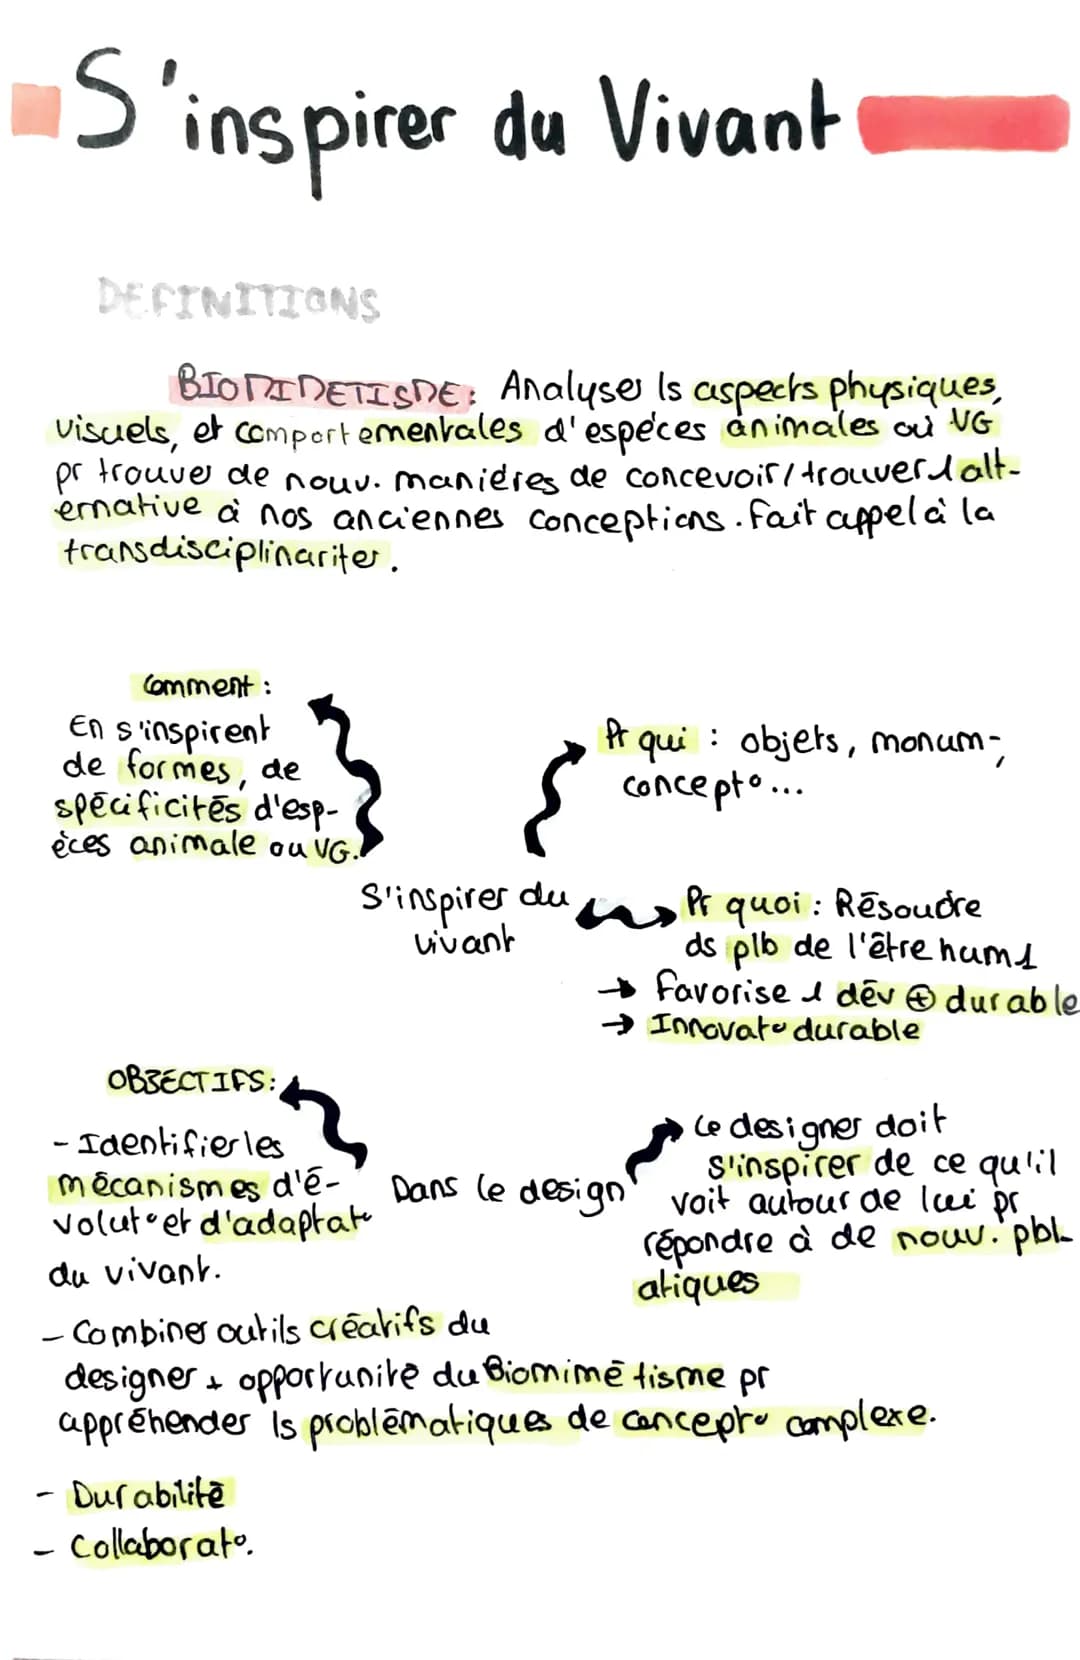 S'inspirer du Vivant
DEFINITIONS
BIOMIMETISME: Analyses ls aspects physiques,
visuels, et comportementales d'espéces animales où VG
pr trouver de nouv. maniéres de concevoir/trouver 1 alt-
ernative à nos anciennes conceptions. fait appel à la
transdisciplinariter.
Comment :
En s'inspirent
de formes, de
spécificités d'esp-
èces animale ou VG.
Pr qui : objets, monum-,
concept°...
S'inspirer du
vivant
Pr quoi : Résoudre
ds plb de l'être hum1
→ favorise 1 dév ⊕ durable
→ Innovat° durable
OBJECTIFS:
- Identifier les
mécanismes d'é-
volut° et d'adaptat°
du vivant.
Dans le design
Le designer doit
s'inspirer de ce qu'il
voit autour de lui pr
répondre à de nouv. pbl-
atiques
- Combiner outils créatifs du
designer + opportunité du Biomimétisme pr
appréhender ls problématiques de concept° complexe.
- Durabilité
- Collaborat°.